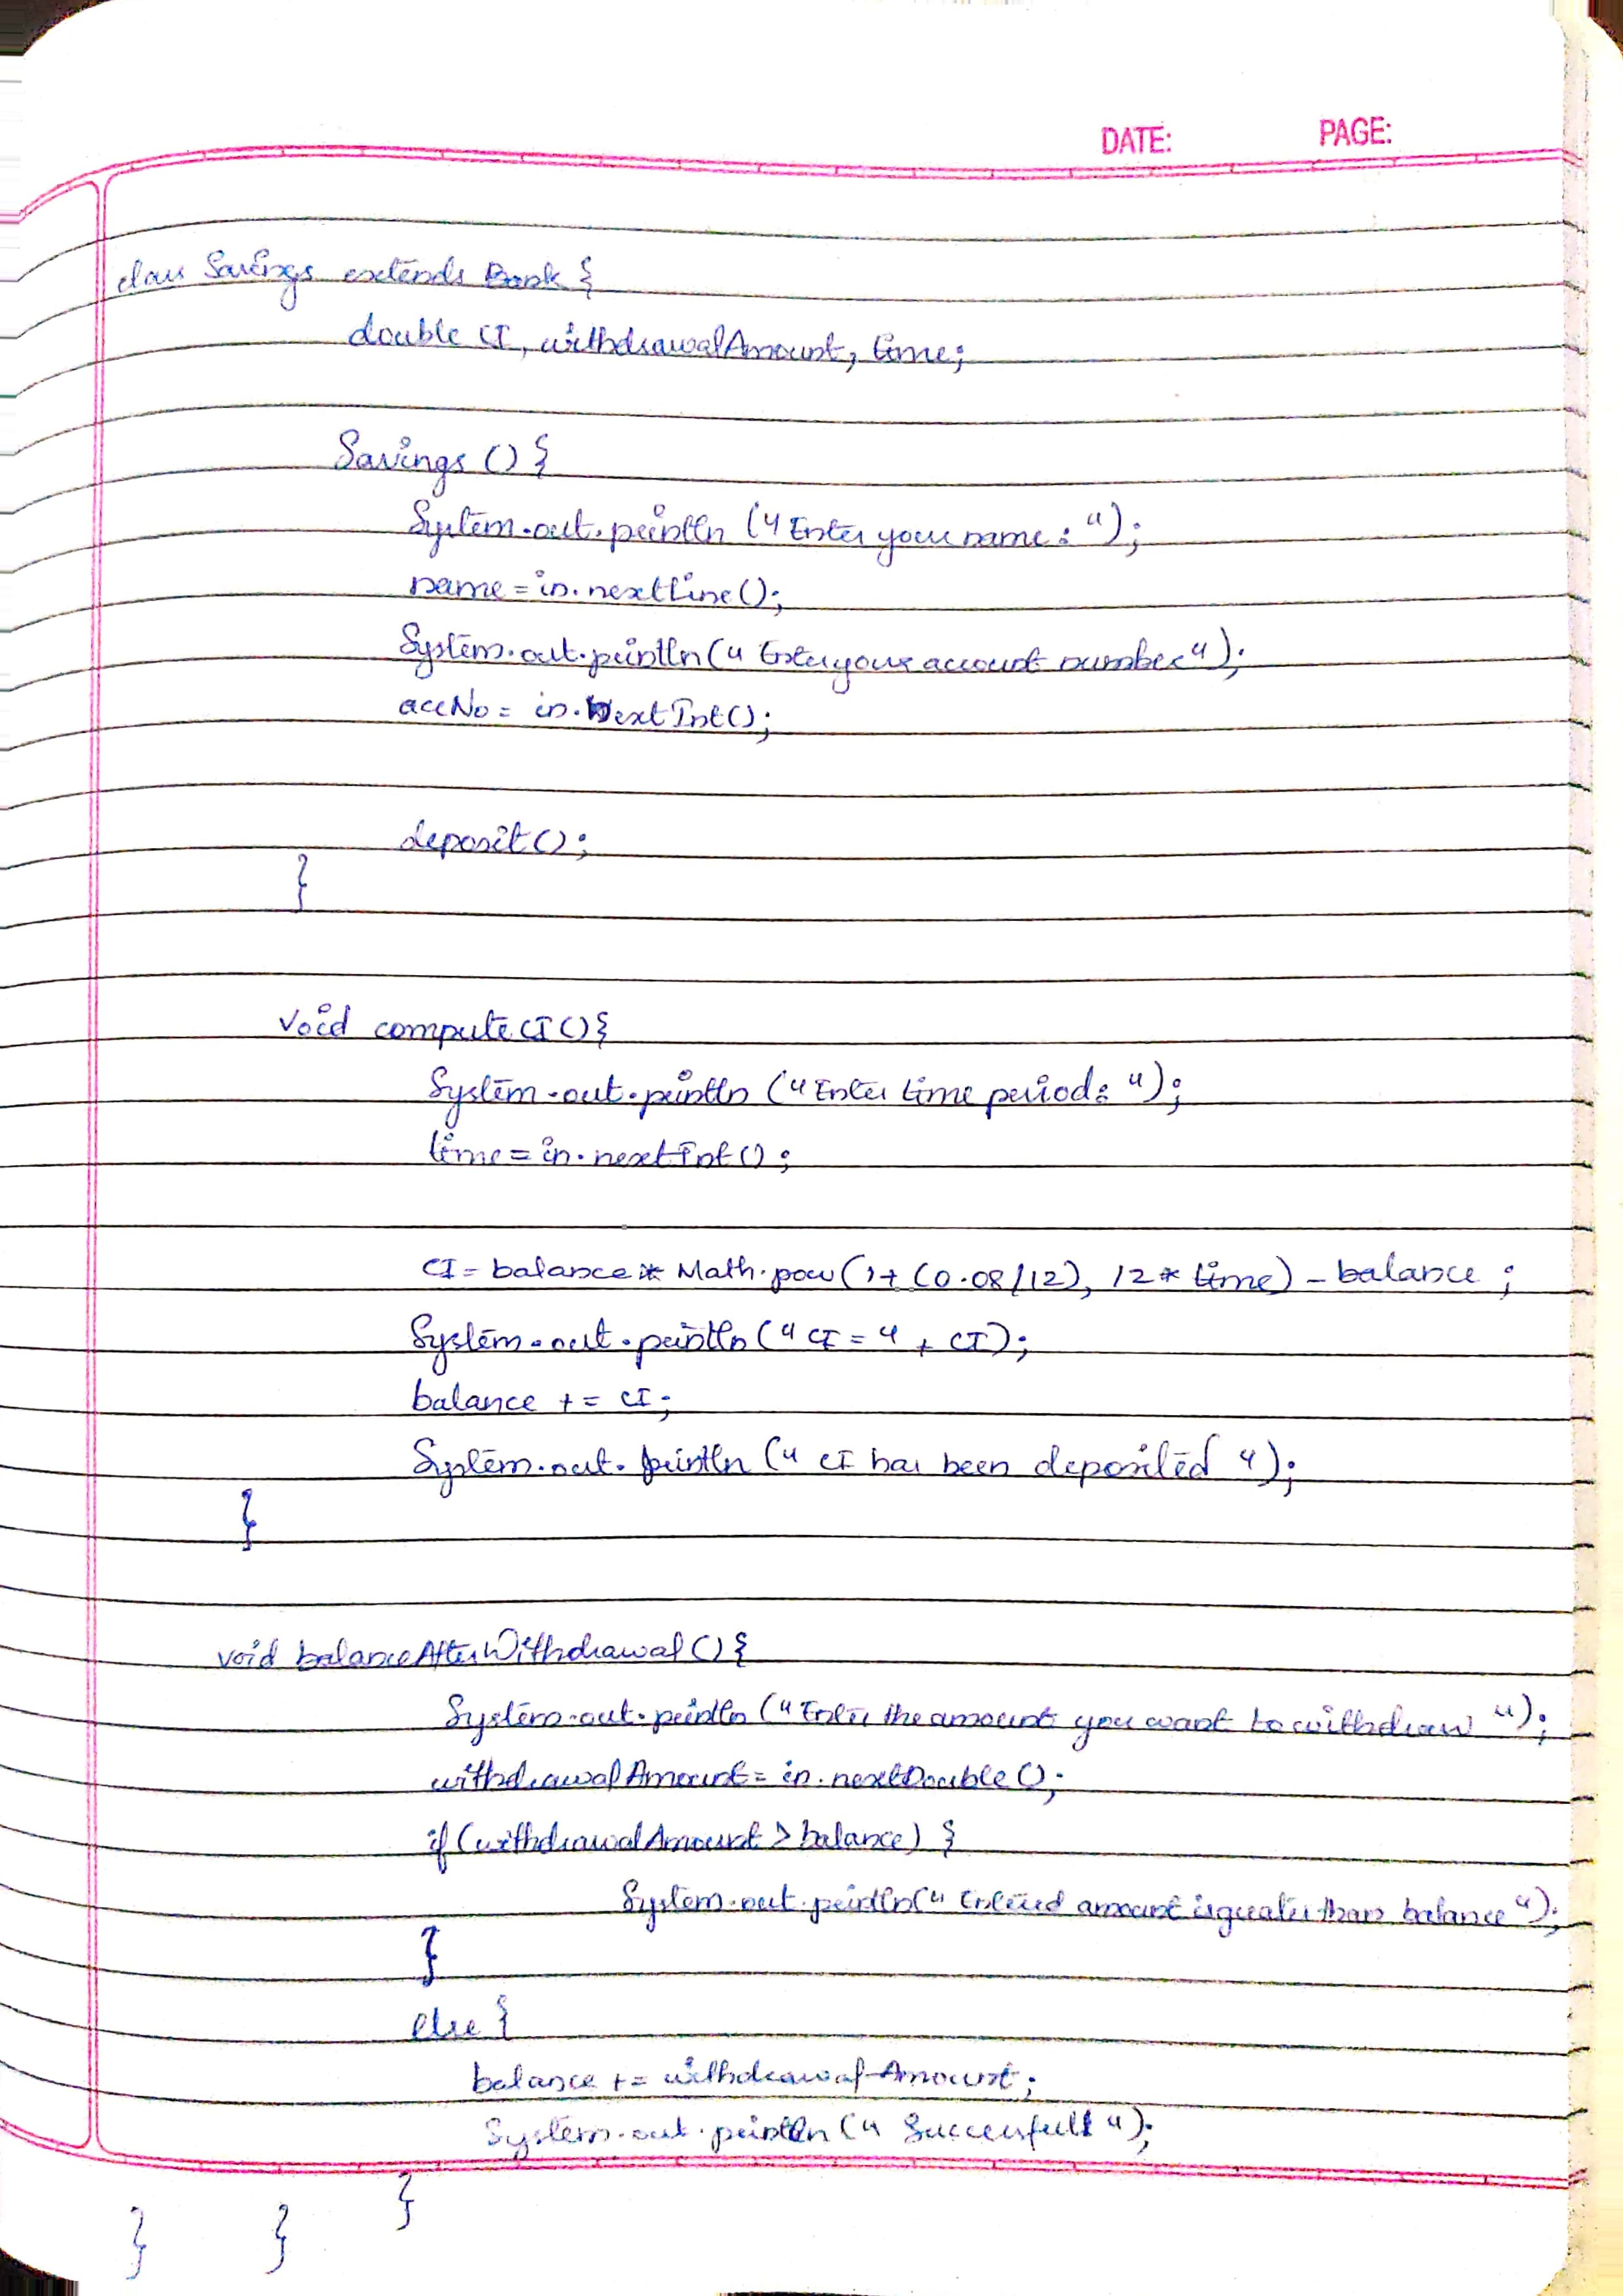 DATE: PAGE:
class Savings extends Bank {
double CI, withdrawalAmount, time;
Savings () {
System.out.println ("Enter your name: ");
name = in.nextLine();
System.out.println (" Enter your account number");
accNo = in.nextInt();
deposit();
}
void compute CI () {
System.out.println ("Enter time period: ");
time = in.nextInt();
CI = balance * Math.pow (1+ (0.08/12), 12 * time) - balance ;
System.out.println (" CI = " + CI);
balance += CI;
System.out.println (" CI has been deposited ");
}
void balanceAfterWithdrawal () {
System.out.println ("Enter the amount you want to withdraw ");
withdrawalAmount = in.nextDouble ();
if (withdrawalAmount > balance) {
System.out.println (" Entered amount is greater than balance ");
}
else {
balance += withdrawalAmount;
System.out.println (" Successfull ");
}
} }